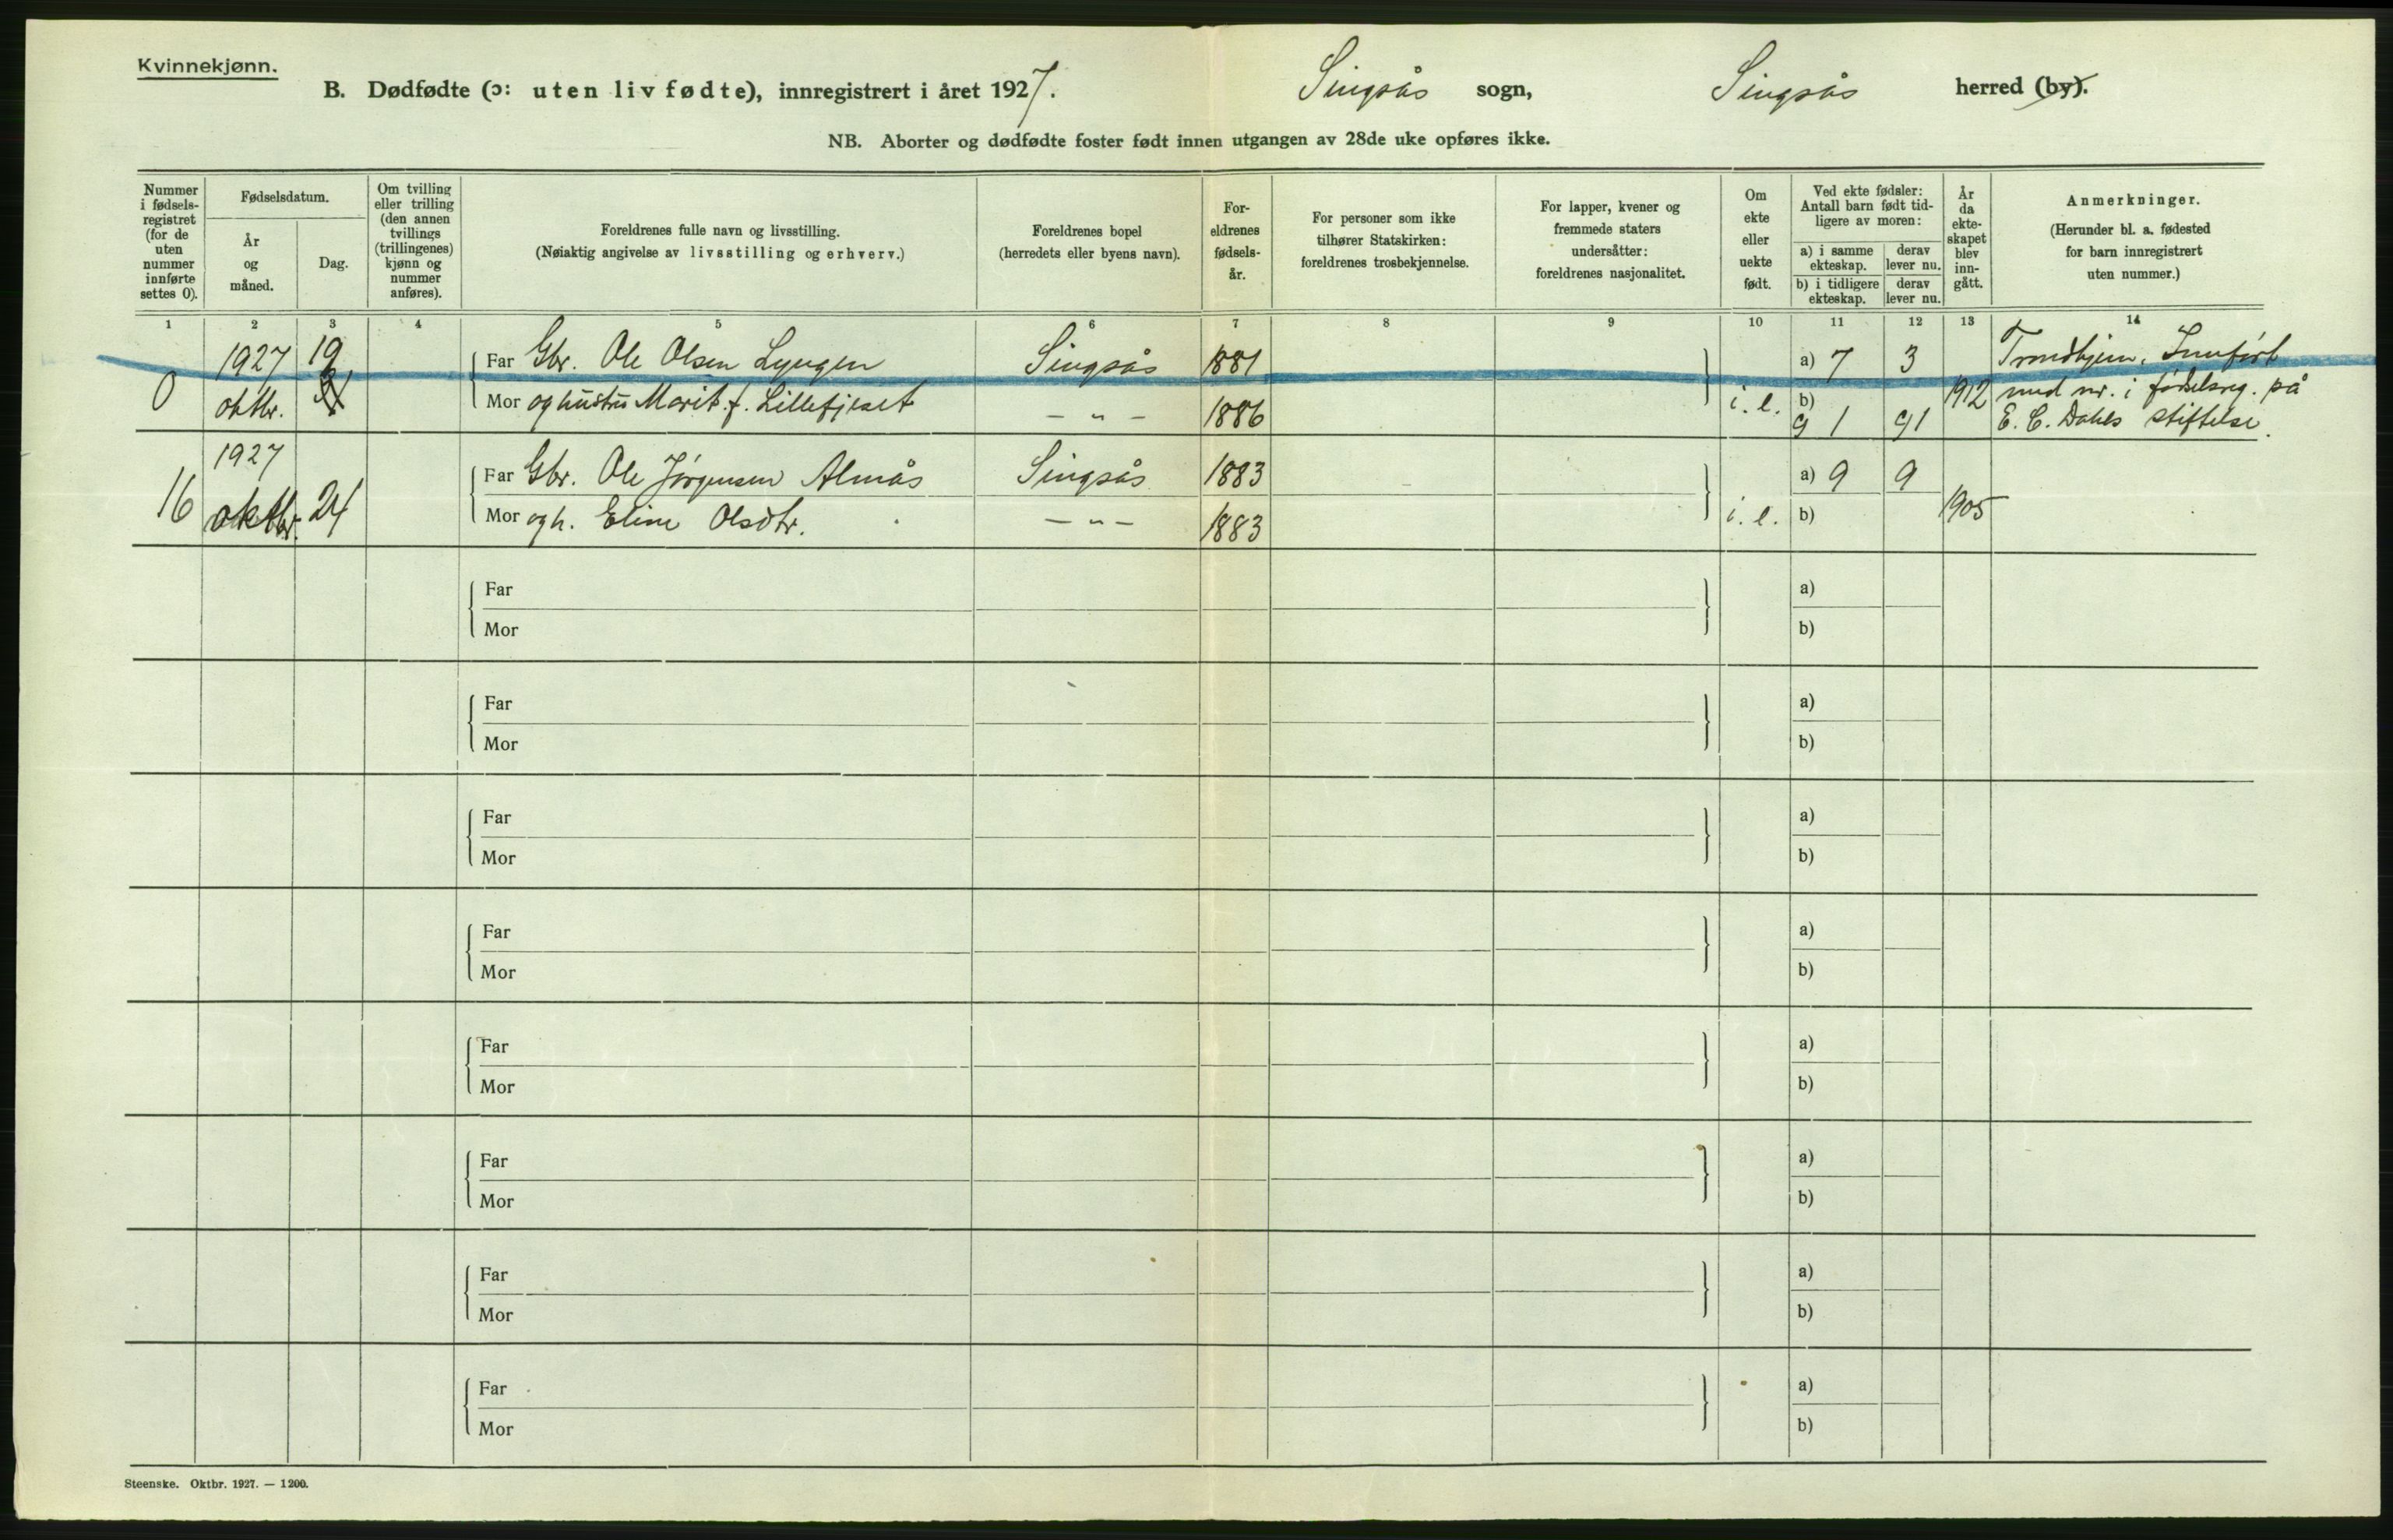 Kvinnekjønn.
B. Dødfødte (ɔ: uten liv fødte), innregistrert i året 1927. Singsås sogn, Singsås herred (by).
NB. Aborter og dødfødte foster født innen utgangen av 28de uke opføres ikke.
Nummer i fødsels-registret (for de uten nummer innførte settes 0).
Fødselsdatum.
År og måned.
Dag.
Om tvilling eller trilling (den annen tvillings (trillingenes) kjønn og nummer anføres).
Foreldrenes fulle navn og livsstilling.
(Nøiaktig angivelse av livsstilling og erhverv.)
Foreldrenes bopel
(herredets eller byens navn).
For-eldrenes fødsels-år.
For personer som ikke tilhører Statskirken: foreldrenes trosbekjennelse.
For lapper, kvener og fremmede staters undersåtter: foreldrenes nasjonalitet.
Om ekte eller uekte født.
Ved ekte fødsler: Antall barn født tid-ligere av moren:
a) i samme ekteskap. derav lever nu.
b) i tidligere ekteskap. derav lever nu.
År da ekte-skapet blev inn-gått.
Anmerkninger.
(Herunder bl. a. fødested for barn innregistrert uten nummer.)
1 2 3 4 5 6 7 8 9 10 11 12 13 14
1927 19 Far Gbr. Ole Olsen Lyngen Singsås 1881 a) 7 3 Trondhjem. Innført
0 oktbr. Mor og hustru Marit f. Lillefjeset — „ — 1886 i. e. b) 1912 med nr. i fødselsreg. på
g 1 g1 E. C. Dahls stiftelse.
1927 Far Gbr. Ole Jørgensen Almås Singsås 1883 a) 9 9
16 oktbr. 24 Mor og h. Eline Olsdtr. — „ — 1883 i. e. b) 1905
Far a)
Mor b)
Far a)
Mor b)
Far a)
Mor b)
Far a)
Mor b)
Far a)
Mor b)
Far a)
Mor b)
Far a)
Mor b)
Far a)
Mor b)
Steenske. Oktbr. 1927. — 1200.